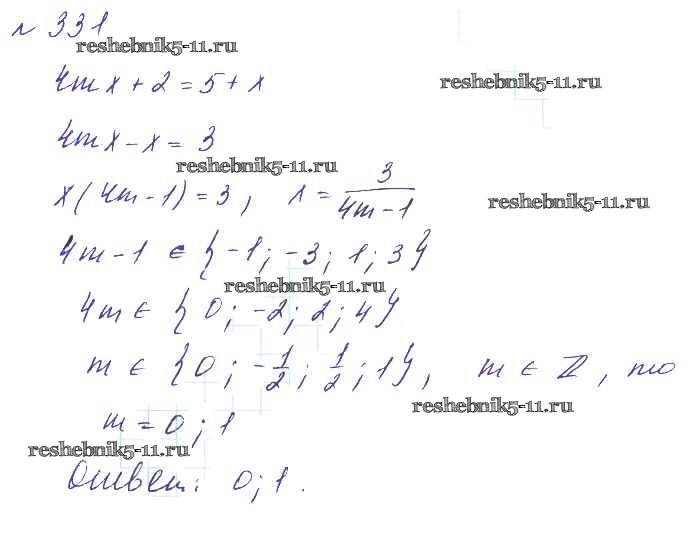 № 331
reshebnik5-11.ru
4mx + 2 = 5 + x
reshebnik5-11.ru
4mx - x = 3
reshebnik5-11.ru
x(4m - 1) = 3, x = 3/(4m - 1)
reshebnik5-11.ru
4m - 1 ∈ {-1; -3; 1; 3}
reshebnik5-11.ru
4m ∈ {0; -2; 2; 4}
m ∈ {0; -1/2; 1/2; 1}, m ∈ ℤ, то
reshebnik5-11.ru
m = 0; 1
reshebnik5-11.ru
Ответ: 0; 1.